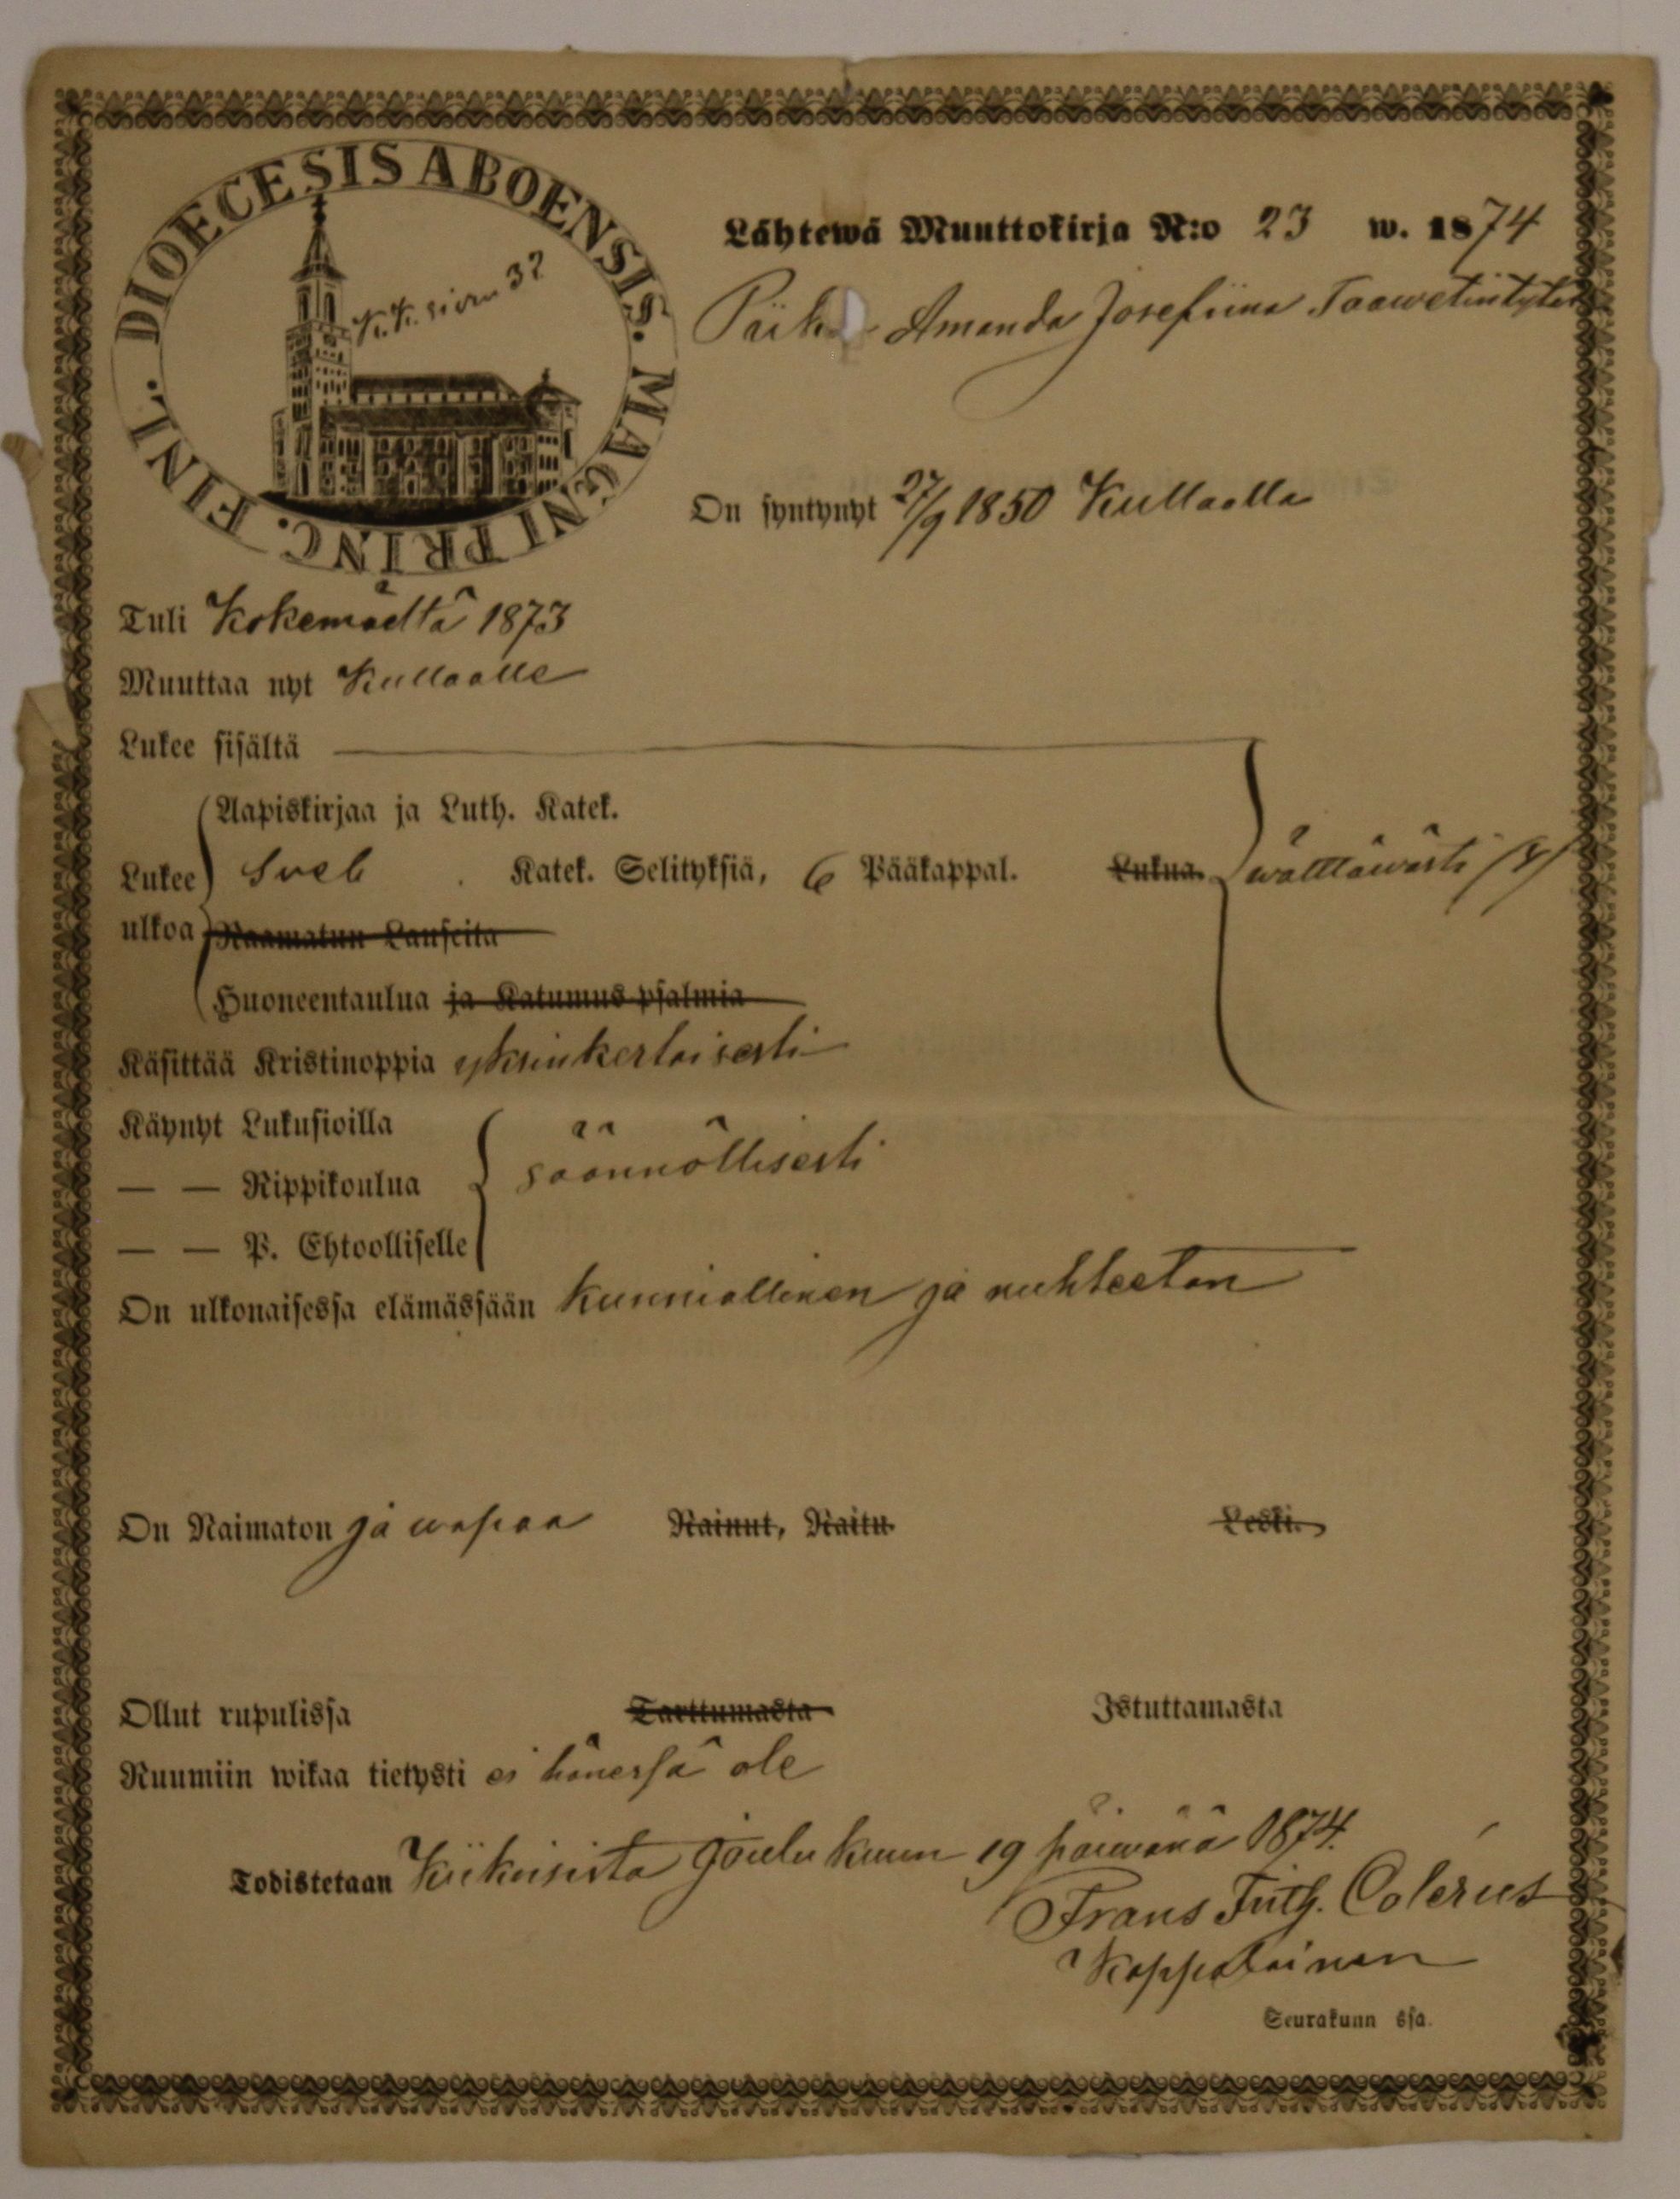 DIOECESIS ABOENSIS. MAGNI PRINC. FINL.
K.K. sivu 32
Lähtewä Muuttokirja N:o 23 w. 1874
Piika Amanda Josefiina Taawetintytär
On syntynyt 27/9 1850 Kullaalla
Tuli Kokemäeltä 1873
Muuttaa nyt Kullaalle
Lukee sisältä
Aapiskirjaa ja Luth. Katek.
Lukee Sveb. Katek. Selityksiä, 6 Pääkappal. Lukua. wälttäwästi
ulkoa Raamatun Lauseita
Huoneentaulua ja Katumus psalmia
Käsittää Kristinoppia yksinkertaisesti
Käynyt Lukusioilla
— — Rippikoulua säännöllisesti
— — P. Ehtoolliselle
On ulkonaisessa elämässään kunniallinen ja nuhteeton
On Naimaton ja wapaa Nainut, Naitu. Leski.
Ollut rupulissa Tarttumasta Istuttamasta
Ruumiin wikaa tietysti ei hänessä ole
Todistetaan Kiikoisista Joulu kuun 19 päiwänä 1874.
Frans Frith. Colerus
Kappalainen
Seurakunn ssa.